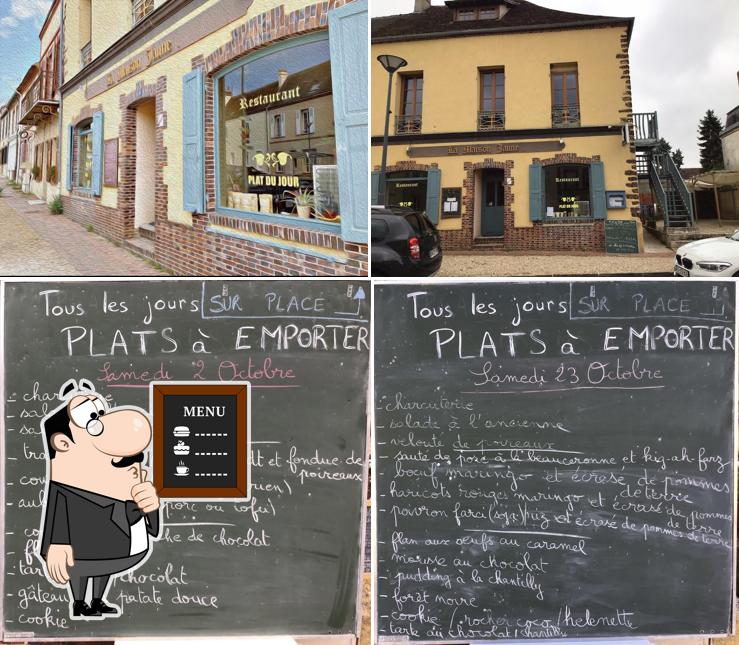 La Maison Jaune
Restaurant
PLAT DU JOUR
La Maison Jaune
Restaurant
Restaurant
PLAT DU JOUR
Tous les jours SUR PLACE
PLATS à EMPORTER
Samedi 2 Octobre
- char
- sal
dt et fondue de
poireaux
porc ou tofu)
he de chocolat
chocolat
- gâteau patate douce
- cookie
MENU
Tous les jours SUR PLACE
PLATS à EMPORTER
Samedi 23 Octobre
- charcuterie
- salade à l'ancienne
- velouté de poireaux
- sauté de porc à la beauceronne et kig-ah-farz
boeuf maringo et écrasé de pommes
de terre
- haricots rouges maringo et écrasé de pommes
de terre
- poivron farci riz et écrasé de pommes de terre
- flan aux oeufs au caramel
- mousse au chocolat
- pudding à la chantilly
- forêt noire
- cookie / rocher coco / helenette
- tarte au chocolat / chantilly